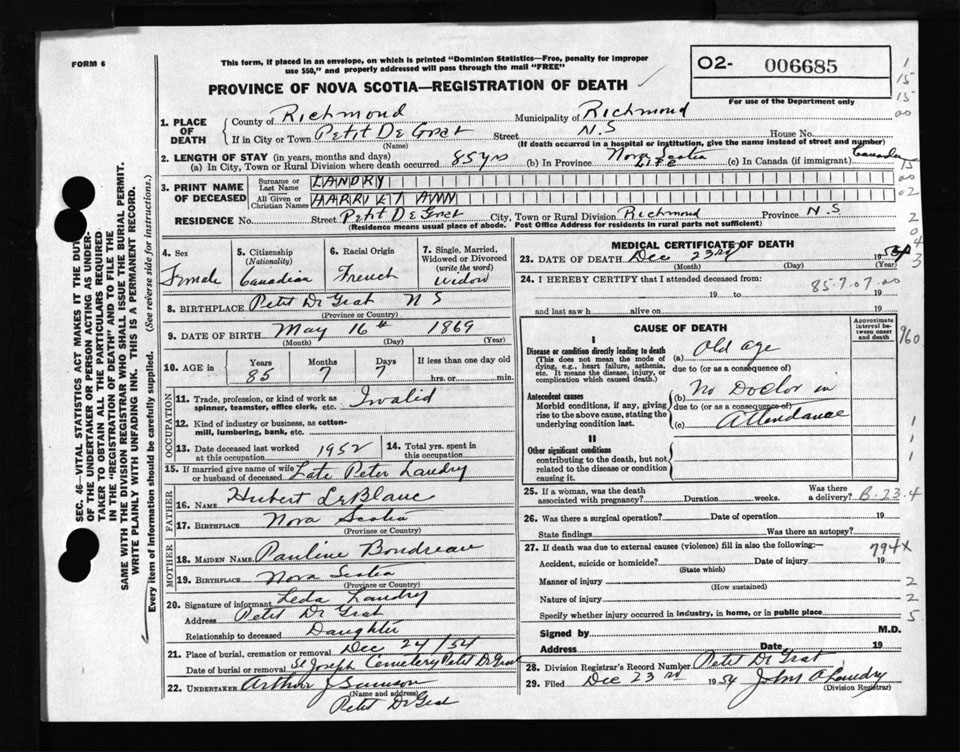 FORM 6
This form, if placed in an envelope, on which is printed "Dominion Statistics—Free, penalty for improper
use $50," and properly addressed will pass through the mail "FREE"
PROVINCE OF NOVA SCOTIA—REGISTRATION OF DEATH
O2- 006685
For use of the Department only
1. PLACE OF DEATH
County of Richmond Municipality of Richmond
If in City or Town Petit De Grat Street N.S House No.
(Name) (If death occurred in a hospital or institution, give the name instead of street and number)
2. LENGTH OF STAY (in years, months and days)
(a) In City, Town or Rural Division where death occurred 85 yrs (b) In Province Nova Scotia Life (c) In Canada (if immigrant) Canada
3. PRINT NAME OF DECEASED
Surname or Last Name LANDRY
All Given or Christian Names HARRIET ANN
RESIDENCE No. Street Petit De Grat City, Town or Rural Division Richmond Province N.S
(Residence means usual place of abode. Post Office Address for residents in rural parts not sufficient)
4. Sex Female
5. Citizenship (Nationality) Canadian
6. Racial Origin French
7. Single, Married, Widowed or Divorced (write the word) widow
8. BIRTHPLACE Petit De Grat N S
(Province or Country)
9. DATE OF BIRTH May 16th 1869
(Month) (Day) (Year)
10. AGE in Years 85 Months 7 Days 7 If less than one day old
hrs. or min.
OCCUPATION
11. Trade, profession, or kind of work as spinner, teamster, office clerk, etc. Invalid
12. Kind of industry or business, as cotton-mill, lumbering, bank, etc.
13. Date deceased last worked at this occupation 1952
14. Total yrs. spent in this occupation
15. If married give name of wife or husband of deceased Late Peter Landry
FATHER
16. Name Hubert LeBlanc
17. Birthplace Nova Scotia
(Province or Country)
MOTHER
18. Maiden Name Pauline Boudreau
19. Birthplace Nova Scotia
(Province or Country)
20. Signature of informant Leda Landry
Address Petit De Grat
Relationship to deceased Daughter
21. Place of burial, cremation or removal Dec 24/54
Date of burial or removal St Joseph Cemetery Petit De Grat
22. UNDERTAKER Arthur J Samson
(Name and address)
Petit De Grat
MEDICAL CERTIFICATE OF DEATH
23. DATE OF DEATH Dec 23rd 1954
(Month) (Day) (Year)
24. I HEREBY CERTIFY that I attended deceased from:
85-7-07-00
19 to 19
and last saw h alive on 19
CAUSE OF DEATH
Approximate interval between onset and death
I
Disease or condition directly leading to death
(This does not mean the mode of dying, e.g., heart failure, asthenia, etc. It means the disease, injury, or complication which caused death.)
(a) Old age
due to (or as a consequence of)
Antecedent causes
Morbid conditions, if any, giving rise to the above cause, stating the underlying condition last.
(b) No Doctor in
due to (or as a consequence of)
(c) Attendance
II
Other significant conditions
contributing to the death, but not related to the disease or condition causing it.
25. If a woman, was the death associated with pregnancy? Duration weeks. Was there a delivery? B-23-4
26. Was there a surgical operation? Date of operation 19
State findings Was there an autopsy?
27. If death was due to external causes (violence) fill in also the following:— 794X
Accident, suicide or homicide? Date of injury 19
(State which)
Manner of injury
(How sustained)
Nature of injury
Specify whether injury occurred in industry, in home, or in public place
Signed by M.D.
Address Date 19
28. Division Registrar's Record Number Petit De Grat
29. Filed Dec 23rd 1954 John A Landry
(Division Registrar)
SEC. 46—VITAL STATISTICS ACT MAKES IT THE DUTY
OF THE UNDERTAKER OR PERSON ACTING AS UNDER-
TAKER TO OBTAIN ALL THE PARTICULARS REQUIRED
IN THE "REGISTRATION OF DEATH" AND TO FILE THE
SAME WITH THE DIVISION REGISTRAR WHO SHALL ISSUE THE BURIAL PERMIT.
WRITE PLAINLY WITH UNFADING INK. THIS IS A PERMANENT RECORD.
Every item of information should be carefully supplied. (See reverse side for instructions.)